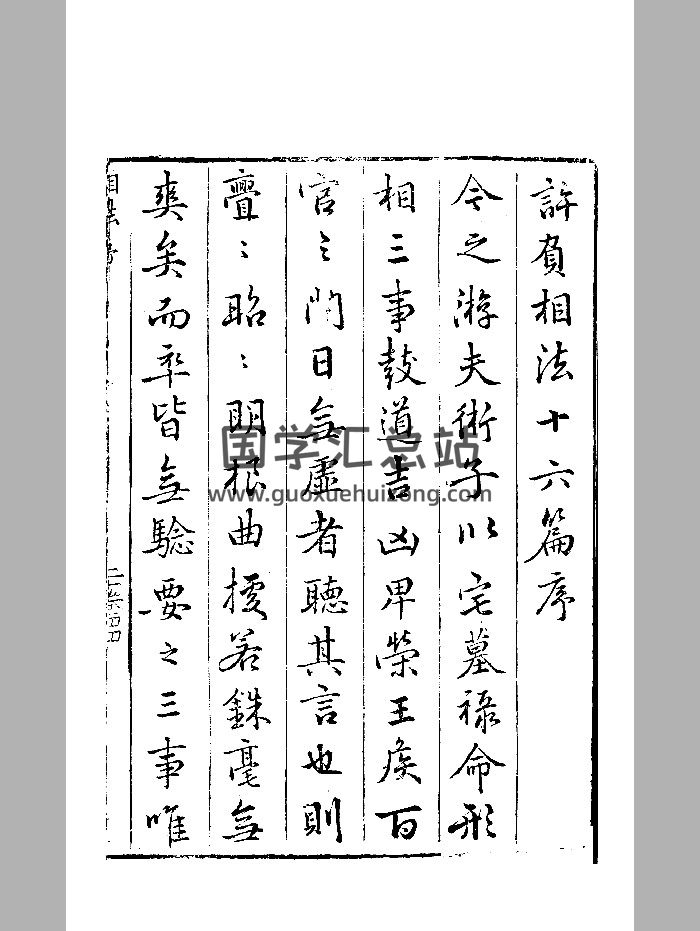 許負相法十六篇序
今之游夫術子以宅墓祿命形
相三事鼓道吉凶卑榮王侯百
官之門日無虛者聽其言也則
亹〻昭〻明根曲援若銖毫無
爽矣而卒皆無驗要之三事唯
相法序
国学汇总站
www.guoxuehuizong.com